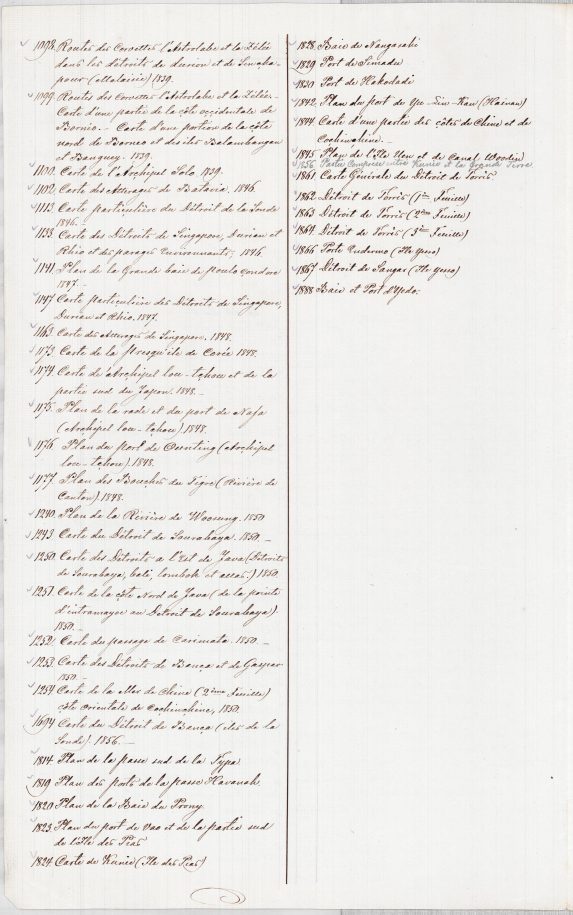 1098. Routes des Corvettes l'Astrolabe et la Zélée
dans les détroits de durion et de Sincapour (Malaisie) 1839.
1099. Routes des Corvettes l'Astrolabe et la Zélée.
Carte d'une partie de la côte occidentale de
Borneo. - Carte d'une portion de la côte
nord de Borneo et des iles Balambangan
et Banguey. 1839.
1100. Carte de l'Archipel Solo. 1839.
1102. Carte des Atterages de Batavia. 1846.
1113. Carte particulière du Détroit de la Sonde
1846. -
1133. Carte des Détroits de Singapore, Durian et
Rhio et des parages Environnants. 1846.
1141. Plan de la Grande baie de poulo condore
1847. -
1147. Carte particulière des Détroits de Singapore,
Durian et Rhio. 1847.
1163. Carte des Atterages de Singapore. 1848.
1173. Carte de la Presqu'ile de Corée 1848.
1174. Carte de l'Archipel lou-tchou et de la
partie sud du Japon. 1848. -
1175. Plan de la rade et du port de Nafa
(Archipel lou-tchou) 1848.
1176. Plan du Port de Ounting (Archipel
lou-tchou). 1848.
1177. Plan des Bouches du Tigre (Rivière de
Canton). 1848.
1240. Plan de la Rivière de Woosung. 1850
1243. Carte du Détroit de Sourabaya. 1850. -
1250. Carte des Détroits a l'Est de Java (Détroits
de Sourabaya, bali, lombok et allas.) 1850.
1251. Carte de la côte Nord de Java (de la pointe
d'intramayoe au Détroit de Sourabaya)
1850. -
1252. Carte du passage de Carimata. 1850. -
1253. Carte des Détroits de Banca et de Gaspar
1850. -
1254. Carte de la Mer de Chine (2ème Feuille)
côte orientale de Cochinchine, 1850
1694. Carte du Détroit de Banca (iles de la
Sonde). 1856. -
1814. Plan de la passe sud de la Typa.
1819. Plan des ports de la passe Havanah.
1820. Plan de la Baie du Prony.
1823. Plan du port de Vao et de la partie sud
de l'Ile des Pins
1824. Carte de Kunié (Ile des Pins)
1828. Baie de Nangasaki
1829. Port de Simadu
1830. Port de Hakodadi
1842. Plan du port de Yu-Lin-Kan (Hainan)
1844. Carte d'une partie des côtes de Chine et de
Cochinchine. -
1845. Plan de l'Ile Uen et du Canal Woodin
1856. Partie Comprise entre Kunié et la Grande Terre
1861. Carte Générale du Détroit de Torrès.
1862. Détroit de Torrès (1ère Feuille)
1863. Détroit de Torrès (2ème Feuille)
1864. Détroit de Torrès (3ème Feuille)
1866. Port Endermo (Ile Yesso)
1867. Détroit de Sangar (Ile Yesso)
1888. Baie et Port d'Yedo.